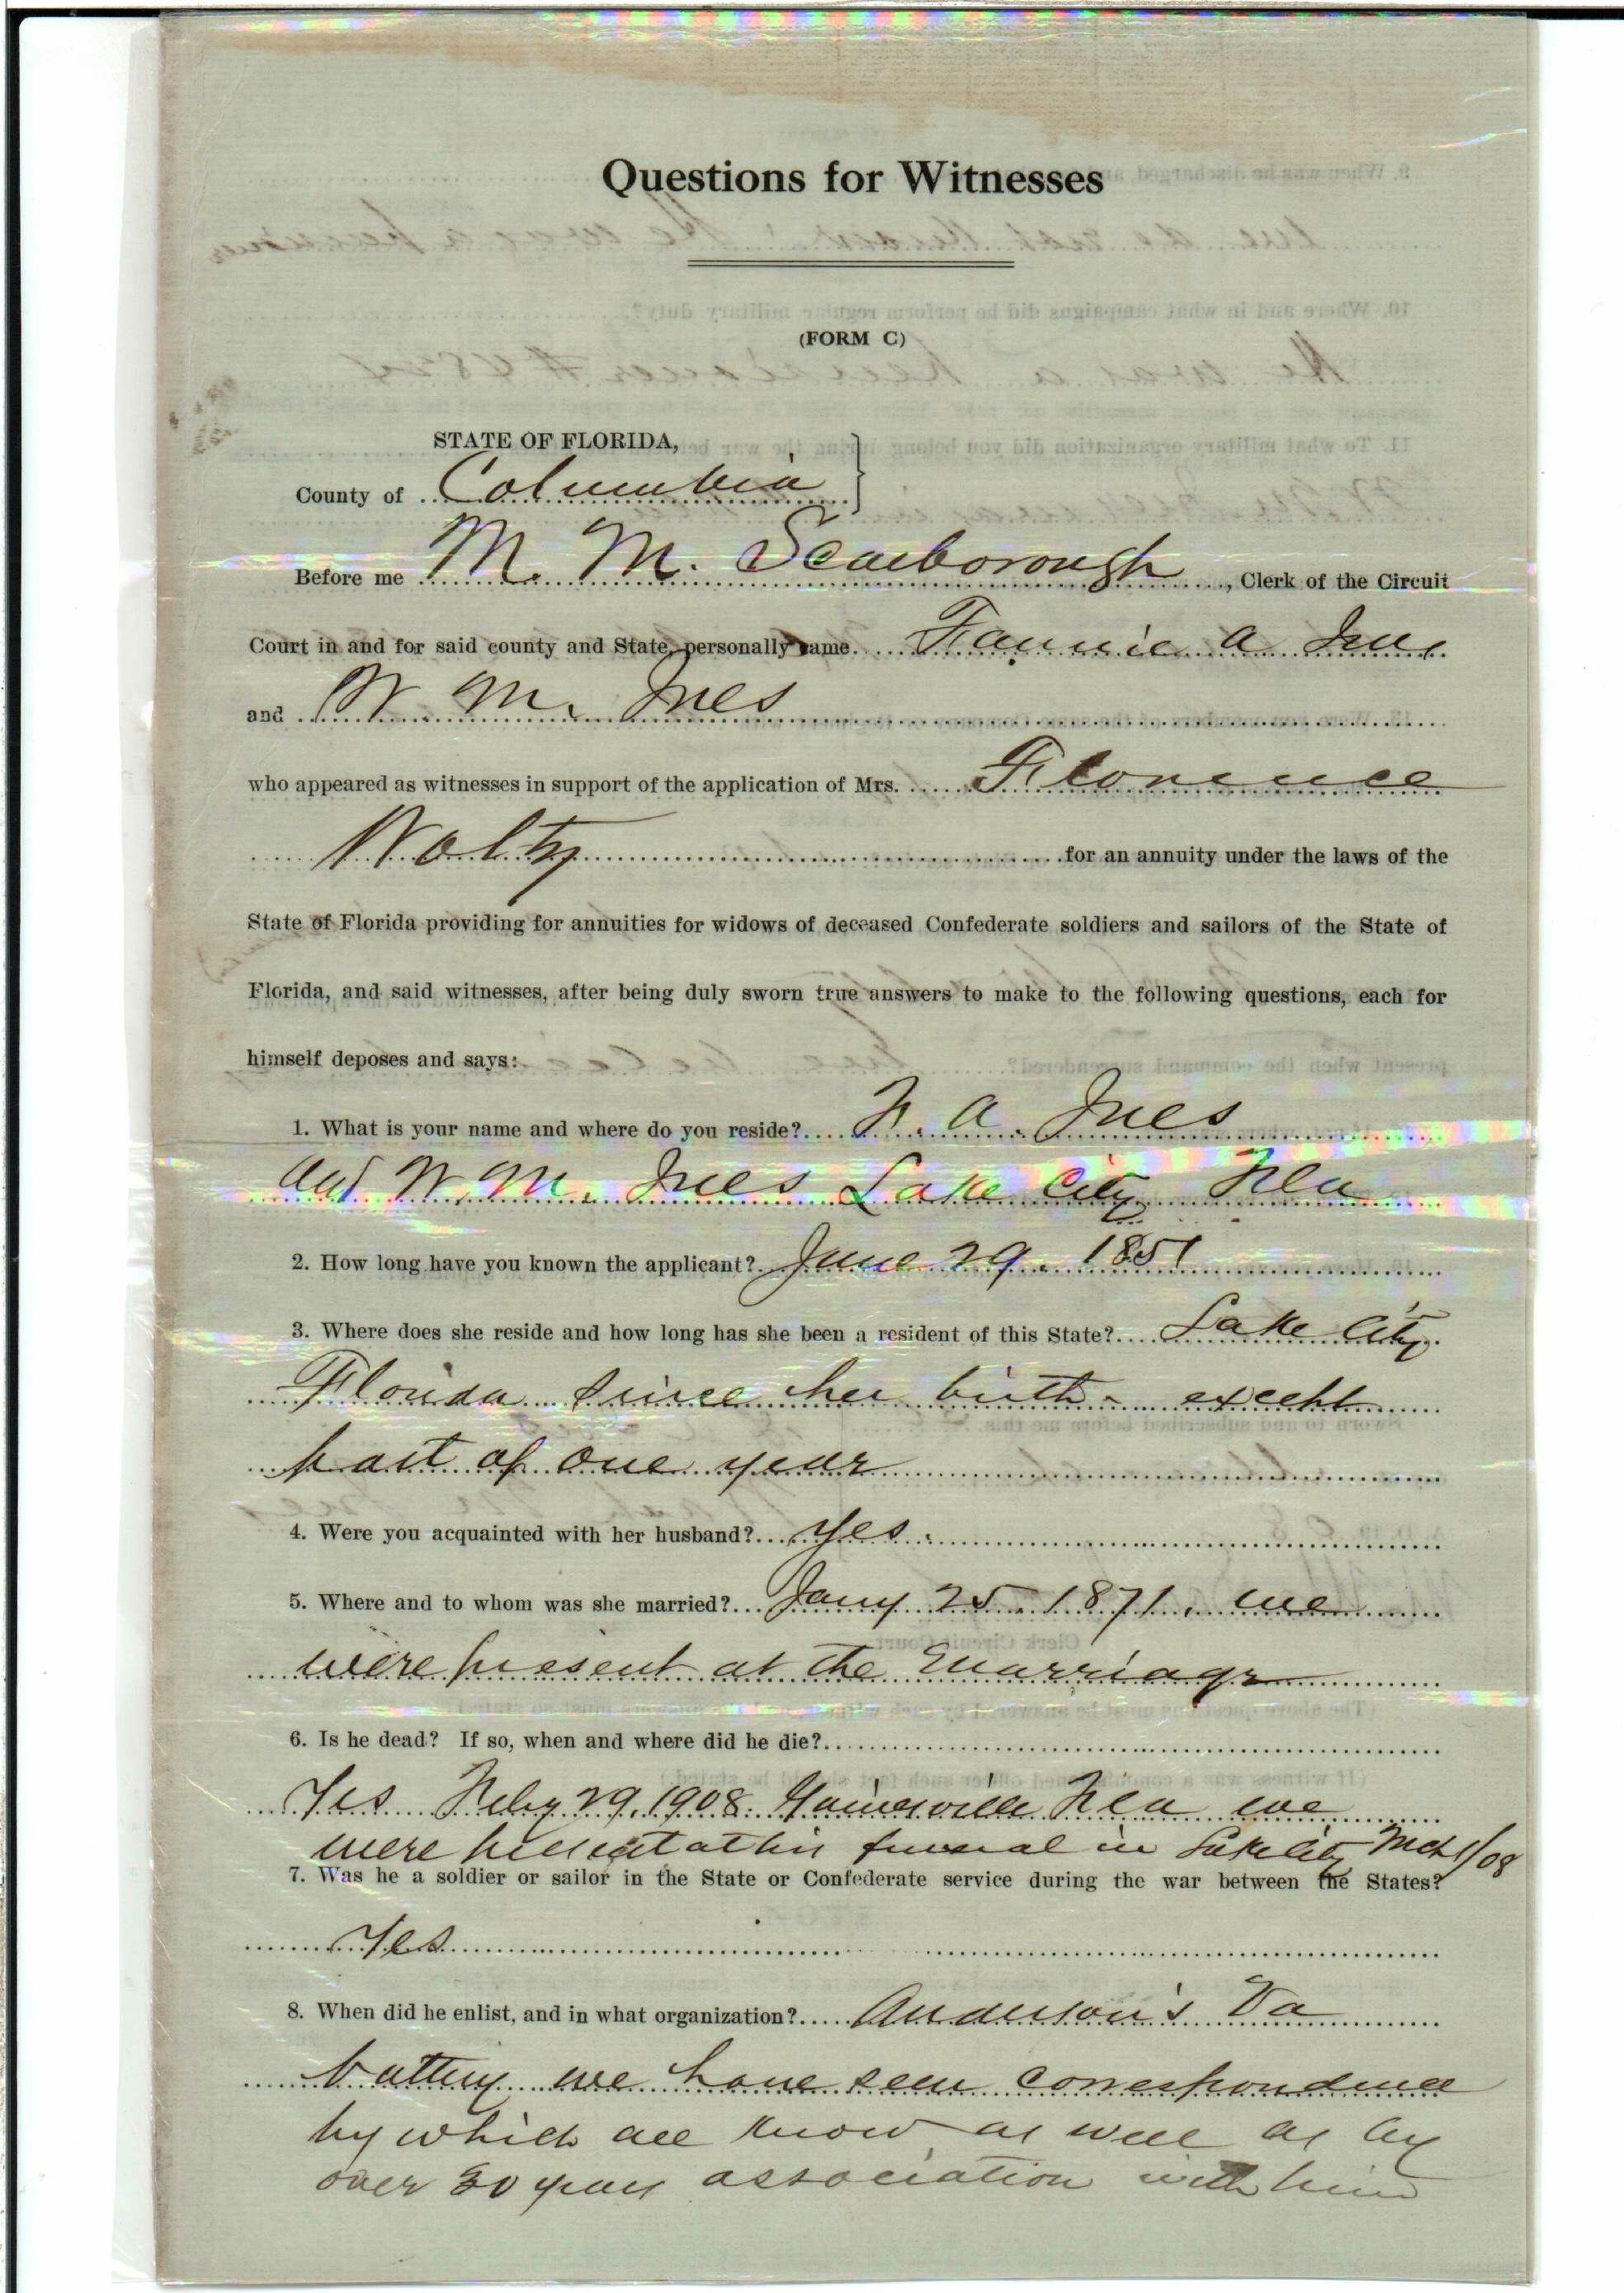 Questions for Witnesses
(FORM C)
STATE OF FLORIDA,
County of Columbia
Before me M. M. Scarborough, Clerk of the Circuit
Court in and for said county and State, personally came Fannie A Ives
and W. M. Ives
who appeared as witnesses in support of the application of Mrs. Florence
Woltz for an annuity under the laws of the
State of Florida providing for annuities for widows of deceased Confederate soldiers and sailors of the State of
Florida, and said witnesses, after being duly sworn true answers to make to the following questions, each for
himself deposes and says:
1. What is your name and where do you reside? F. A. Ives
and W. M. Ives Lake City Fla
2. How long have you known the applicant? June 29. 1851
3. Where does she reside and how long has she been a resident of this State? Lake City
Florida since her birth - except
part of one year
4. Were you acquainted with her husband? Yes.
5. Where and to whom was she married? Jany 25. 1871. we
were present at the Marriage
6. Is he dead? If so, when and where did he die?
Yes Feby 29. 1908. Gainesville Fla we
were present at his funeral in Lake City Mch 1/08
7. Was he a soldier or sailor in the State or Confederate service during the war between the States?
Yes
8. When did he enlist, and in what organization? Anderson's Va
battery we have seen correspondence
by which all know as well as by
over 30 years association with him